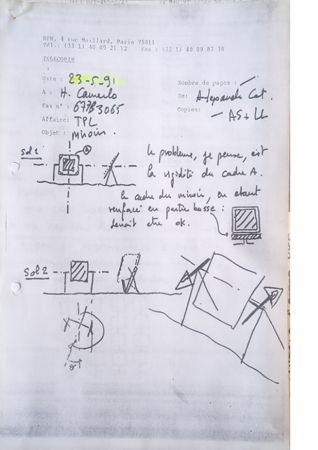 RPW, 4 rue Maillard, Paris 75011
Tél.: (33 1) 40 09 21 12 Fax : (33 1) 40 09 83 38
TELECOPIE
Date : 23-5-91
Nombre de pages : —
A : H. Camerlo
De: Alexandre Cot.
Fax n° : 67783065
Copies: AS + LL
Affaire: TPL
Objet : miroir.
Sol 1
A
le problème, je pense, est
la rigidité du cadre A.
le cadre du miroir, en étant
renforcé en partie basse :
devait être ok.
Sol 2